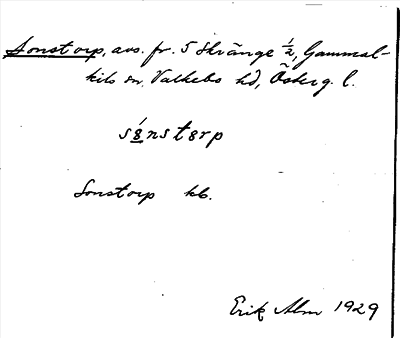 Sonstorp, avs. fr. 5 Skränge ½, Gammal-
kils sn, Valkebo hd, Österg. l.
sónstorp
Sonstorp kb.
Erik Alm 1929